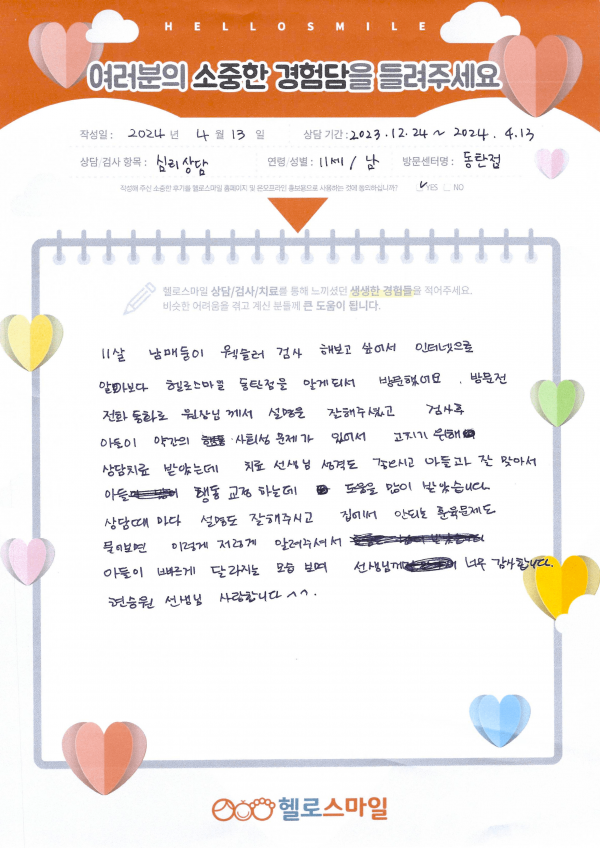 HELLOSMILE
여러분의 소중한 경험담을 들려주세요
작성일 : 2024 년 4 월 13 일 상담 기간 : 2023.12.24 ~ 2024.4.13
상담/검사 항목 : 심리상담 연령/성별 : 11세 / 남 방문센터명 : 동탄점
작성해 주신 소중한 후기를 헬로스마일 홈페이지 및 온오프라인 홍보용으로 사용하는 것에 동의하십니까? ✓ YES NO
헬로스마일 상담/검사/치료를 통해 느끼셨던 생생한 경험들을 적어주세요.
비슷한 어려움을 겪고 계신 분들께 큰 도움이 됩니다.
11살 남매들이 웩슬러 검사 해보고 싶어서 인터넷으로
알아보다 헬로스마일 동탄점을 알게되서 방문했어요. 방문전
전화 통화로 원장님께서 설명을 잘해주셨고 검사후
아들이 약간의 사회성 문제가 있어서 고치기 위해
상담치료 받았는데 치료 선생님 성격도 좋으시고 아들과 잘 맞아서
아들 행동 교정 하는데 도움을 많이 받았습니다
상담때 마다 설명도 잘해주시고 집에서 안되는 훈육문제도
물어보면 이렇게 저렇게 알려주셔서
아들이 빠르게 달라지는 모습 보며 선생님께 너무 감사합니다.
현승원 선생님 사랑합니다 ^^.
헬로스마일